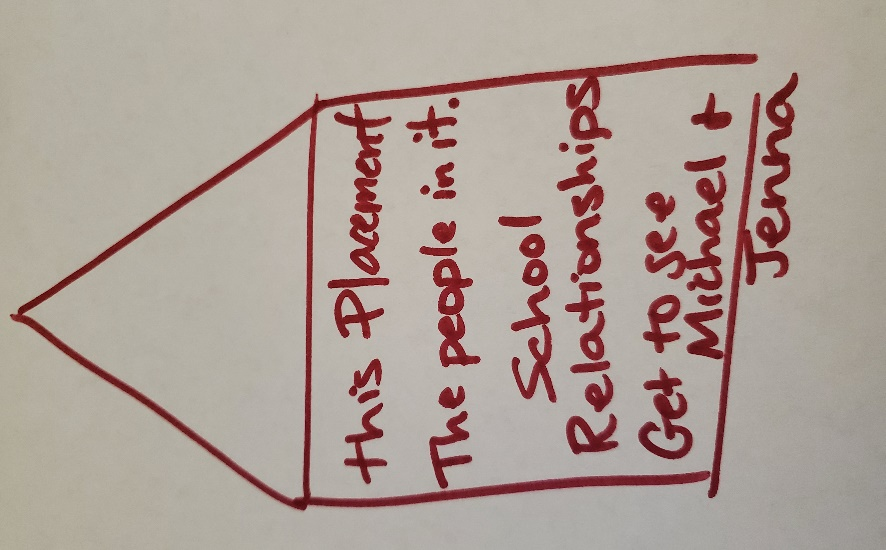 this Placement
The people in it.
School
Relationships
Get to see
Michael +
Jenna